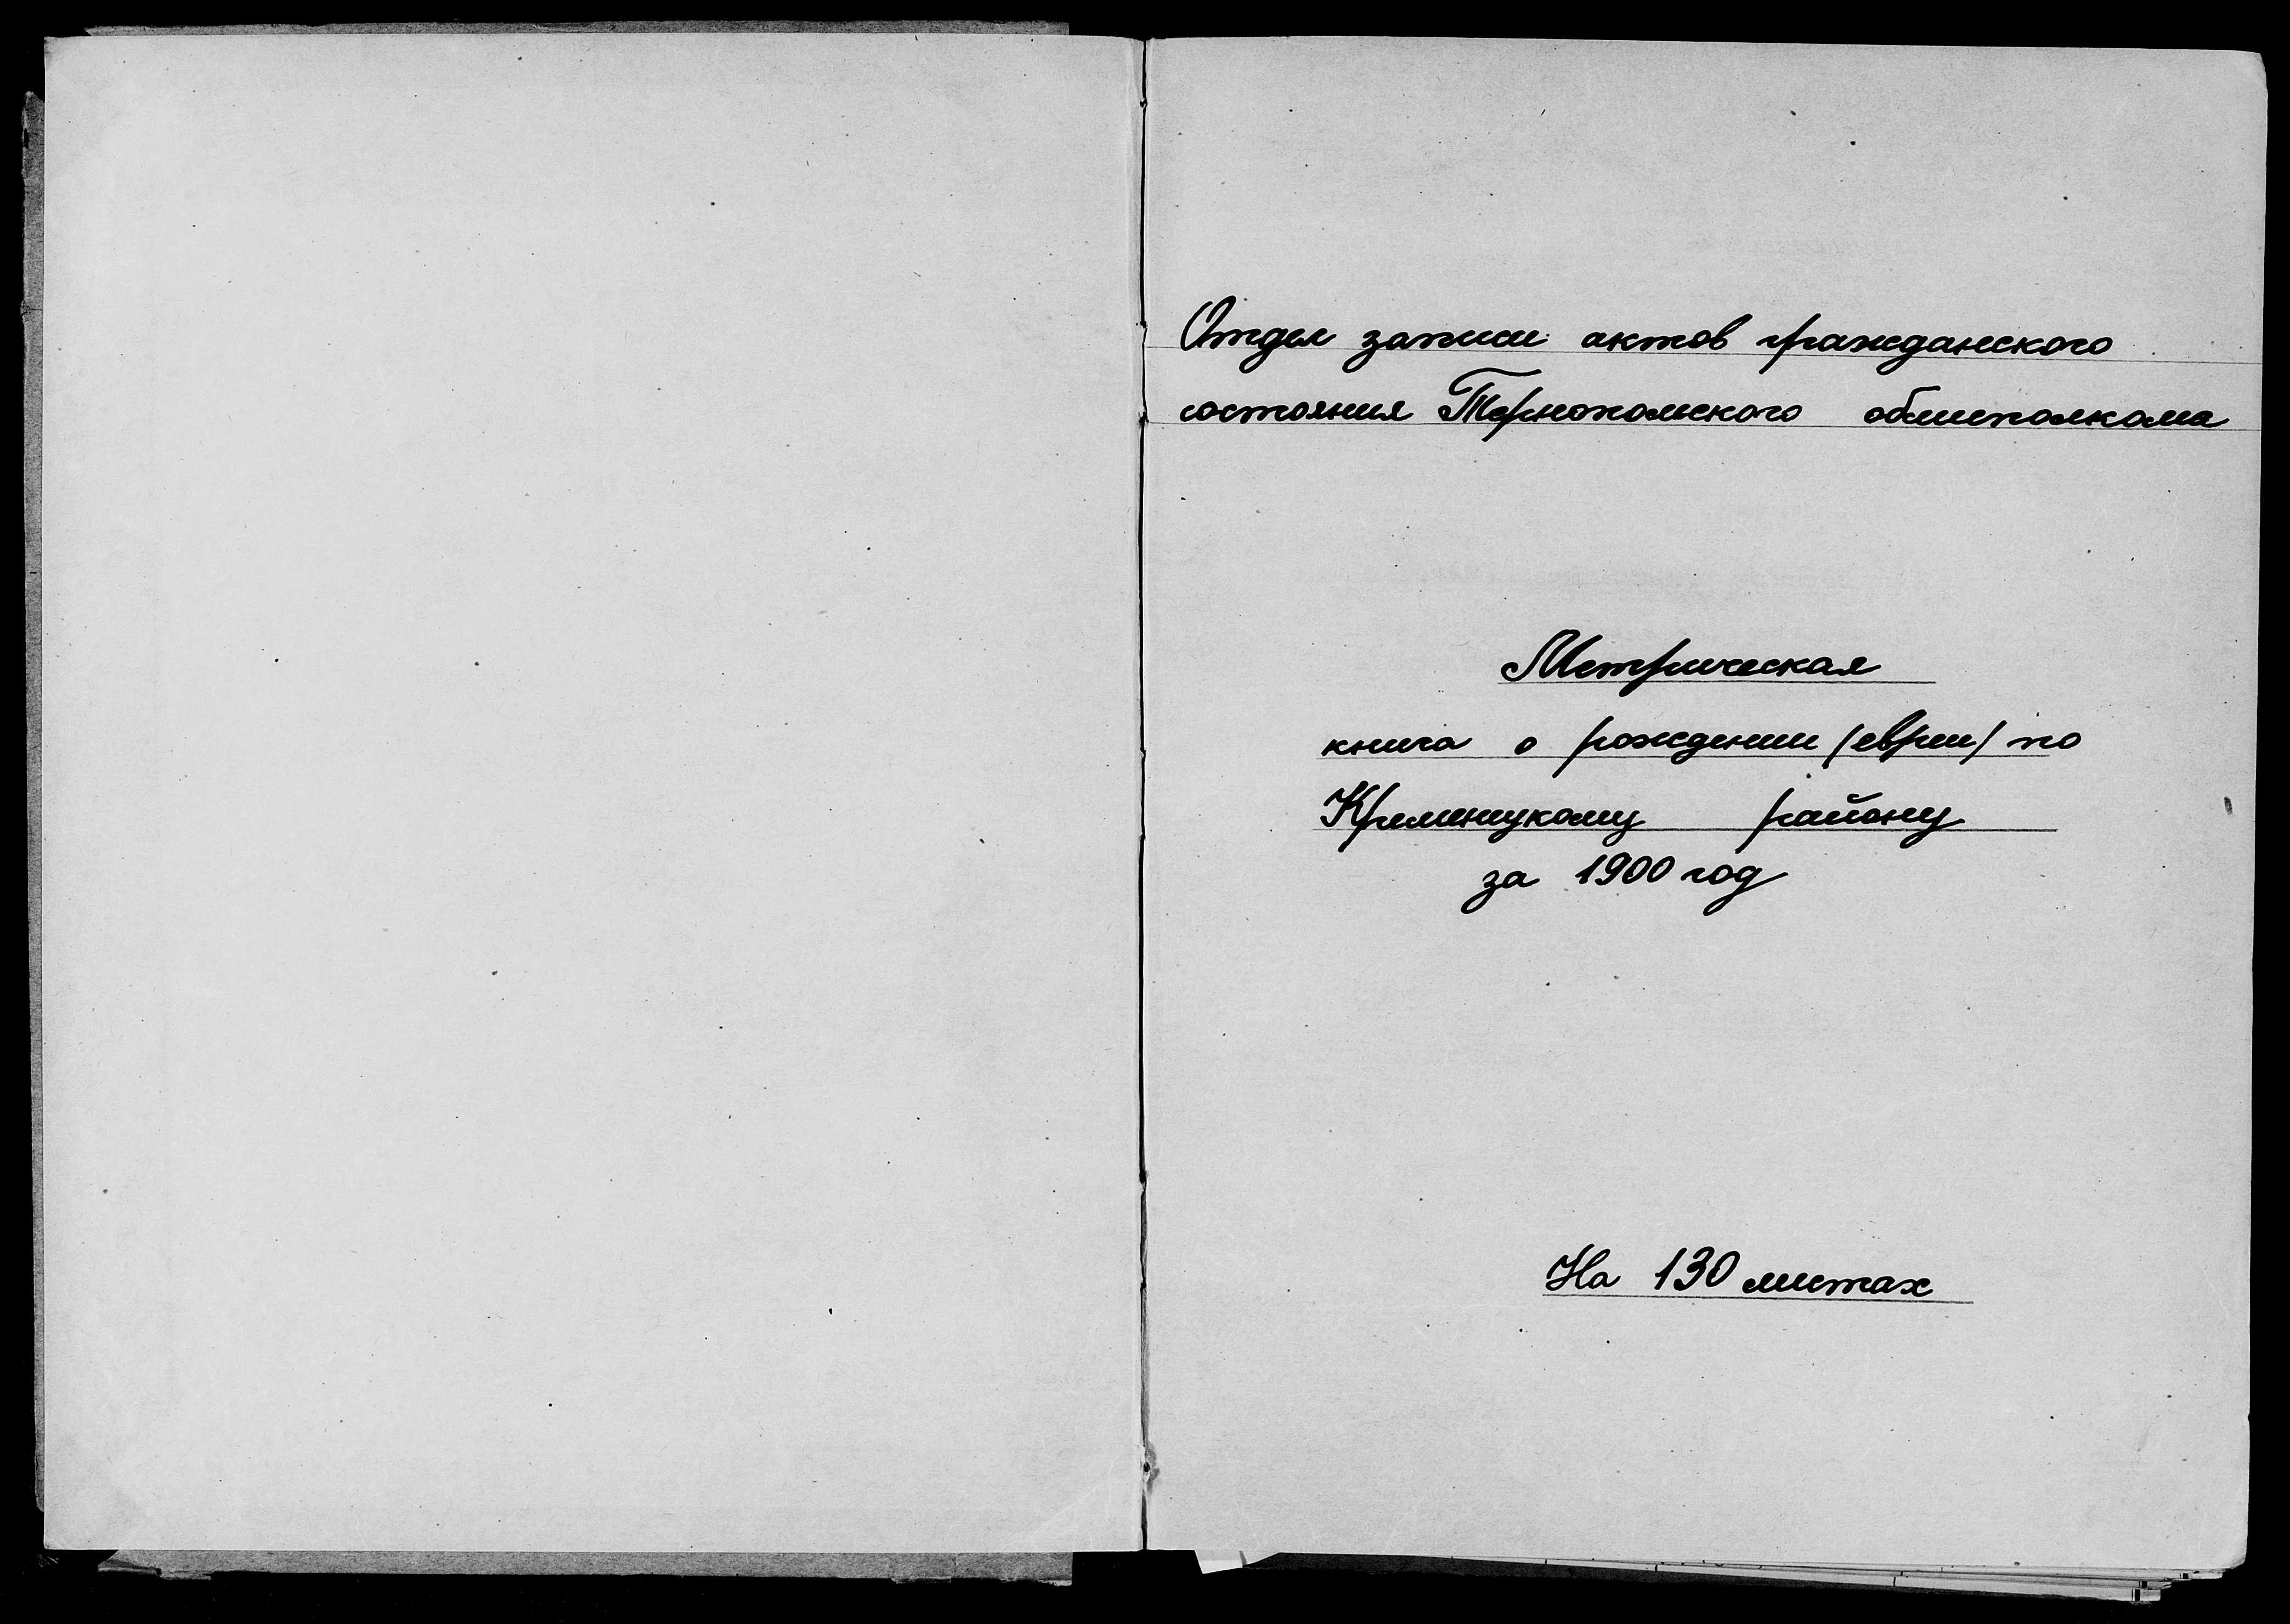 Отдел записи актов гражданского
состояния Тернопольского облисполкома
Метрическая
книга о рождении /евреи/ по
Кременецкому району
за 1900 год
На 130 листах